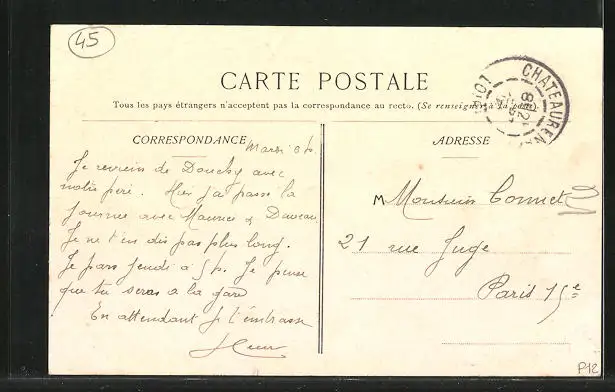 45
CARTE POSTALE
Tous les pays étrangers n'acceptent pas la correspondance au recto. (Se renseigner à la poste)
CHATEAUREN
LOIRET
CORRESPONDANCE
ADRESSE
Mardi
Je reviens de Douchy avec
notre père. Hier j'ai passé la
journée avec Maurice &
Je ne t'en dis pas plus long.
Je pars jeudi à 5h. Je pense
que tu seras a la gare
En attendant je t'embrasse
M Monsieur Cornnet
21 rue Juge
Paris 15e
P12